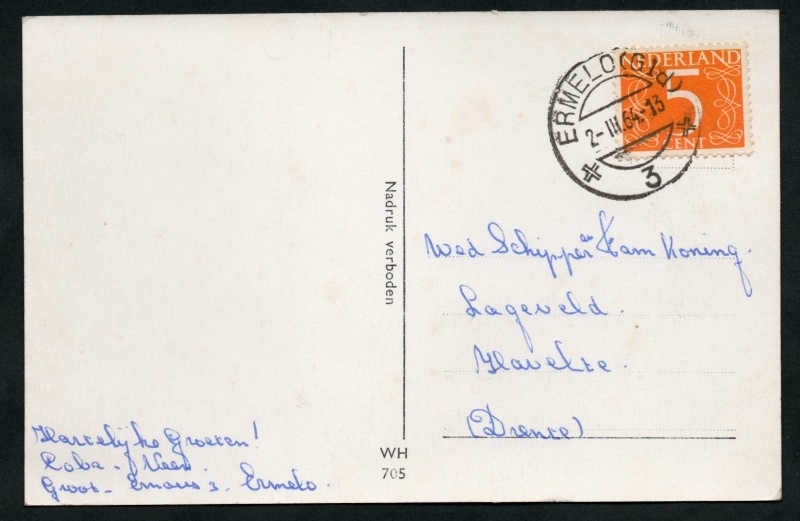 NEDERLAND
5
CENT
ERMELO (Gld)
2-III.64.-13
3
Nadruk verboden
Wed Schipper en fam Koning.
Lageveld.
Havelte.
(Drente)
Hartelijke Groeten!
Groot - Emaus 3. Ermelo.
WH
705